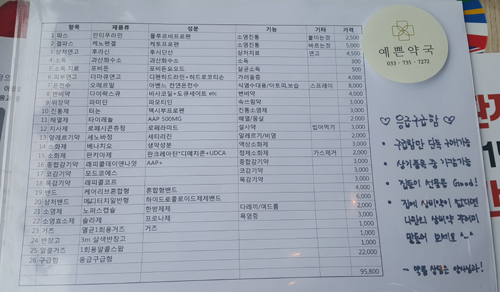 항목 제품류 성분 기능 기타 가격
1 파스 플루르비프로펜 소염진통 붙이는것 2,500
2 겔파스 케노펜겔 케토프로펜 소염진통 바르는것 5,000
3 상처연고 후시딘 후시딘산 상처치료 연고 4,500
4 소독 과산화수소 과산화수소 소독 300
5 소독,지혈 포비돈 포비돈요오드 살균소독 500
6 피부연고 더마큐연고 가려움증 4,000
7 식염수대용/아토피,보습 스프레이 8,000
8 변비약 변비약 4,000
9 위장약 파미딘 파모티딘 속쓰림약 3,000
10 진통제 덱시부프로펜 진통소염제 3,000
11 해열제 타이레놀 AAP 500MG 해열/몸살 3,000
12 지사제 로페시콘츄정 로페라미드 설사약 씹어먹기 3,000
13 알레르기약 세노바정 세티리진 알레르기/비염 2,000
14 소화제 베나치오 생약성분 액상소화제 1,000
15 소화제 판키아제 판크레아틴*디메치콘+UDCA 정제소화제 가스제거 2,000
16 종합감기약 AAP+ 종합감기약 3,000
17 코감기약 모드코에스 코감기약 3,000
18 목감기약 래피콜코프 목감기약 3,000
19 밴드 케어리브혼합형 혼합형밴드
20 상처밴드 하이드로콜로이드제제밴드 6,000
21 소염제 노퍼스캡슐 한방제제 다래끼/여드름 2,000
22 소염효소제 스라제 프로나제 목염증 3,000
23 거즈 멸균1회용거즈 거즈 1,000
24 반창고 3m 살색반창고 4,000
25 알콜 1회용알콜스왑 1,000
26 구급함 응급구급함 22,000
95,800
예쁜약국
033 - 735 - 7272
응급구급함
구급함만 단독 구매가능
상기품목 중 가감가능
집들이 선물용 Good!
집에 상비약이 없다면
나만의 상비약 꾸러미
만들어 보세요